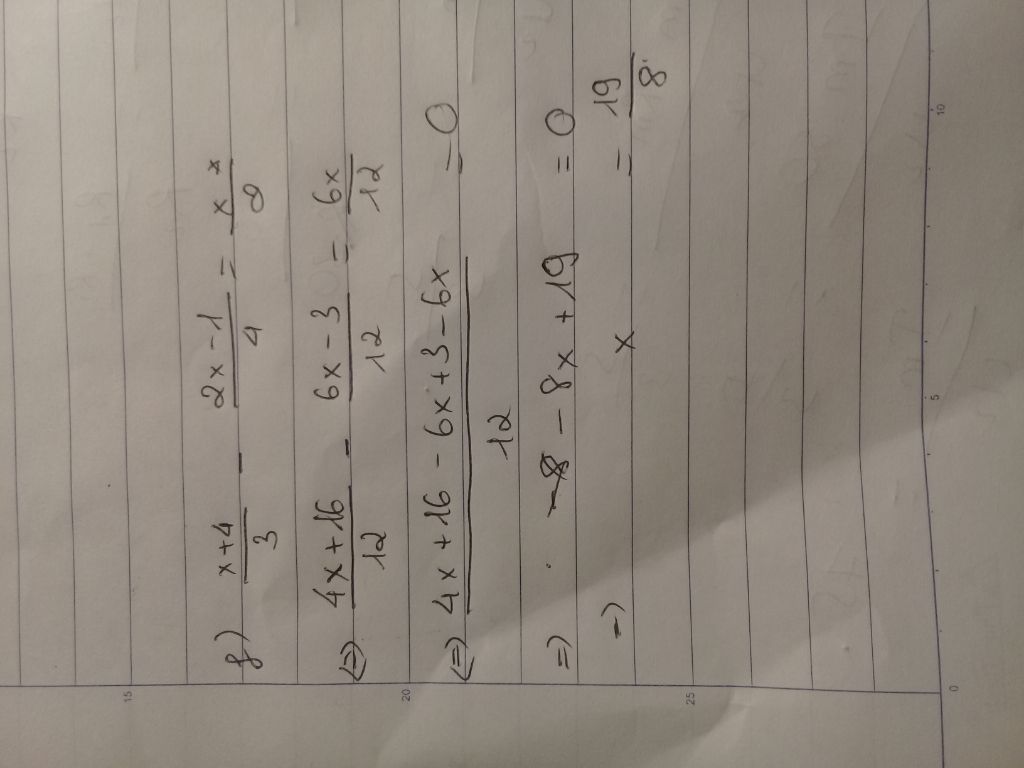 f) x+4/3 - 2x-1/4 = x x/8
(=) 4x+16/12 - 6x-3/12 = 6x/12
(=) 4x+16-6x+3-6x/12 = 0
=) -8x+19 = 0
=) x = 19/8
15
20
25
0
5
10